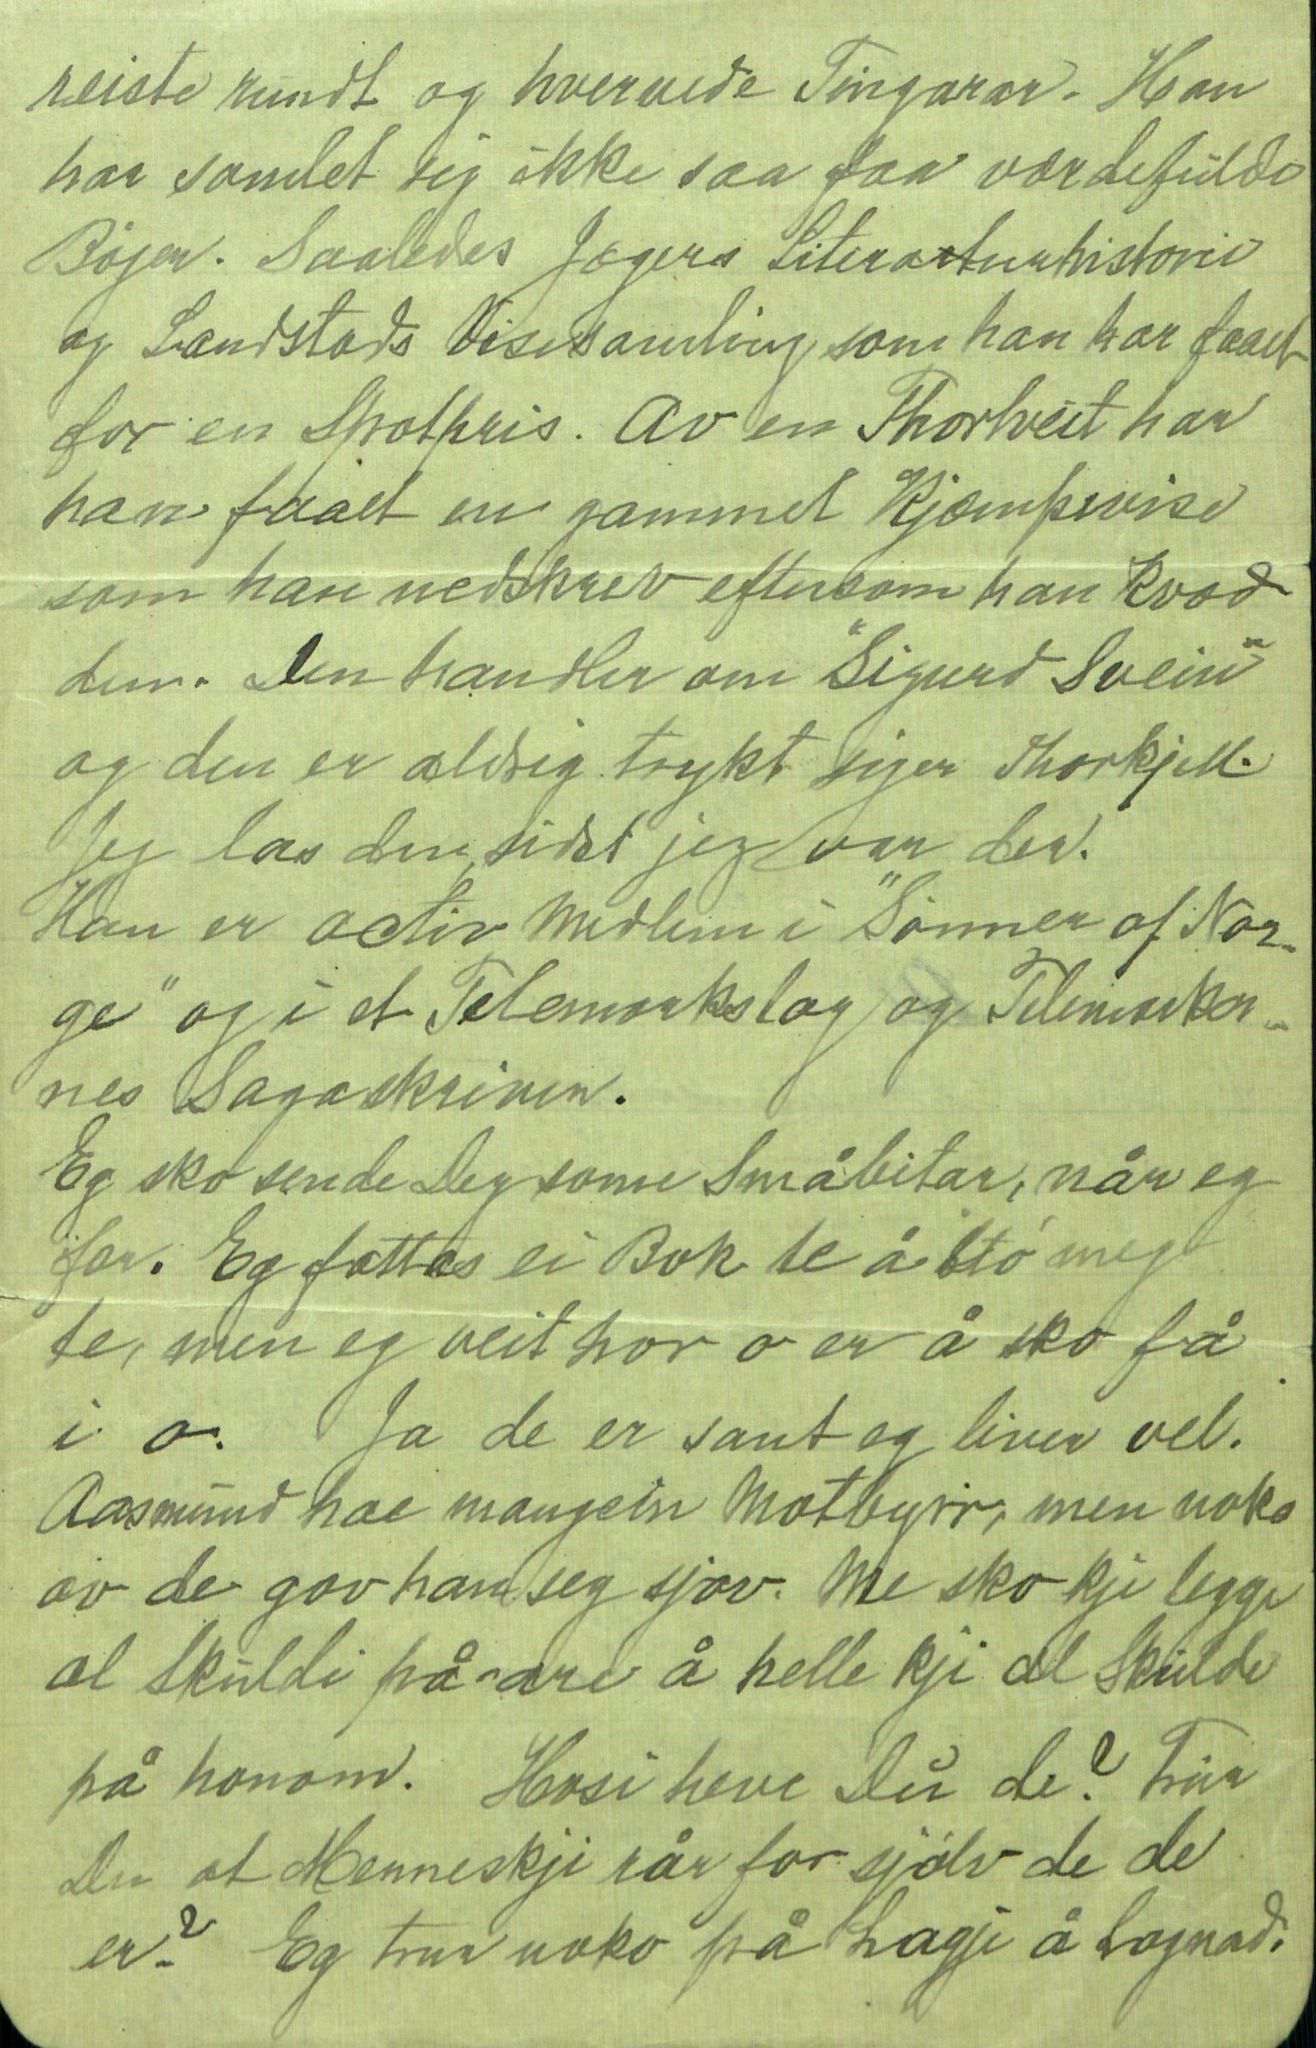 reiste rundt og hvervede Tingarar. Han
har samlet sig ikke saa faa værdefulde
Bøger. Saaledes Jægers Literarturhistorie
og Landstads Visesamling, som han har faaet
for en Spotpris. Av en Thortveit har
han faaet en gammel Kjæmpevise
som han nedskrev eftersom han kvad
den. Den handler om "Sigurd Svein"
og den er aldrig trykt siger Thorkjell.
Jeg las den, sidst jeg var der.
Han er activ Medlem i "Sønner af Nor-
ge" og i et Telemarkslag og Telemarker-
nes Sagaskriver.
Eg sko sende Deg some Småbitar, når eg
far. Eg fattas ei Bok te å stø meg
te, men eg veit hor o er å sko få
i o. Ja de er sant eg liver vel.
Aasmund hae mangein Motbyrr, men noko
av de gav han seg sjav. Me sko kji legge
al Skuldi på are å helle kji al Skulde
på honom. Hosi heve Du de? Trur
Du at Menneskji rår for sjølv de de
er? Eg trur noko på Lagji å Lagnad.